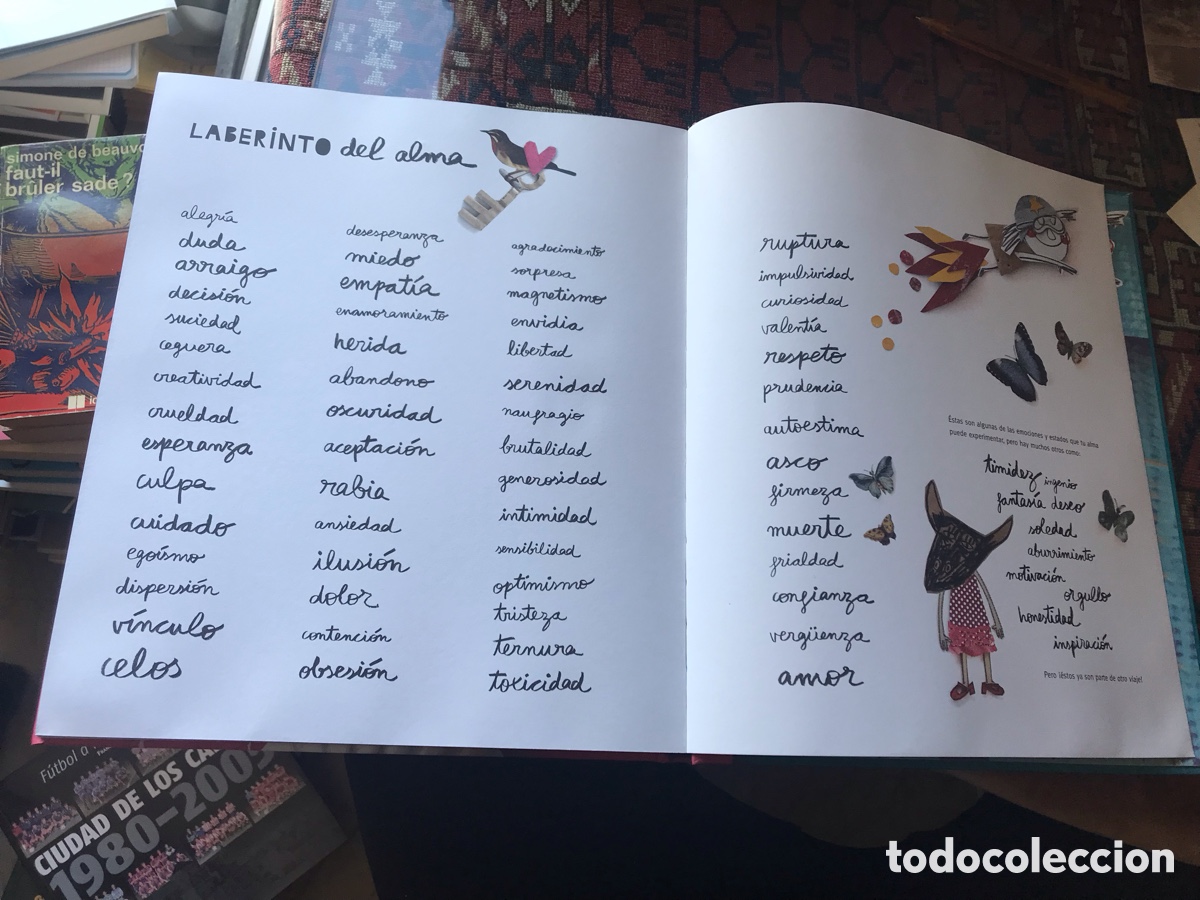 LABERINTO del alma
alegría
duda
arraigo
decisión
suciedad
ceguera
creatividad
crueldad
esperanza
culpa
cuidado
egoísmo
dispersión
vínculo
celos
desesperanza
miedo
empatía
enamoramiento
herida
abandono
oscuridad
aceptación
rabia
ansiedad
ilusión
dolor
contención
obsesión
agradecimiento
sorpresa
magnetismo
envidia
libertad
serenidad
naufragio
brutalidad
generosidad
intimidad
sensibilidad
optimismo
tristeza
ternura
toxicidad
ruptura
impulsividad
curiosidad
valentía
respeto
prudencia
autoestima
asco
firmeza
muerte
frialdad
confianza
vergüenza
amor
Éstas son algunas de las emociones y estados que tu alma
puede experimentar, pero hay muchos otros como:
timidez ingenio
fantasía deseo
soledad
aburrimiento
motivación
orgullo
honestidad
inspiración
Pero ¡éstos ya son parte de otro viaje!
simone de beauvo
faut-il
brûler sade?
Fútbol a
CIUDAD DE LOS CA
1980-2005
todocoleccion